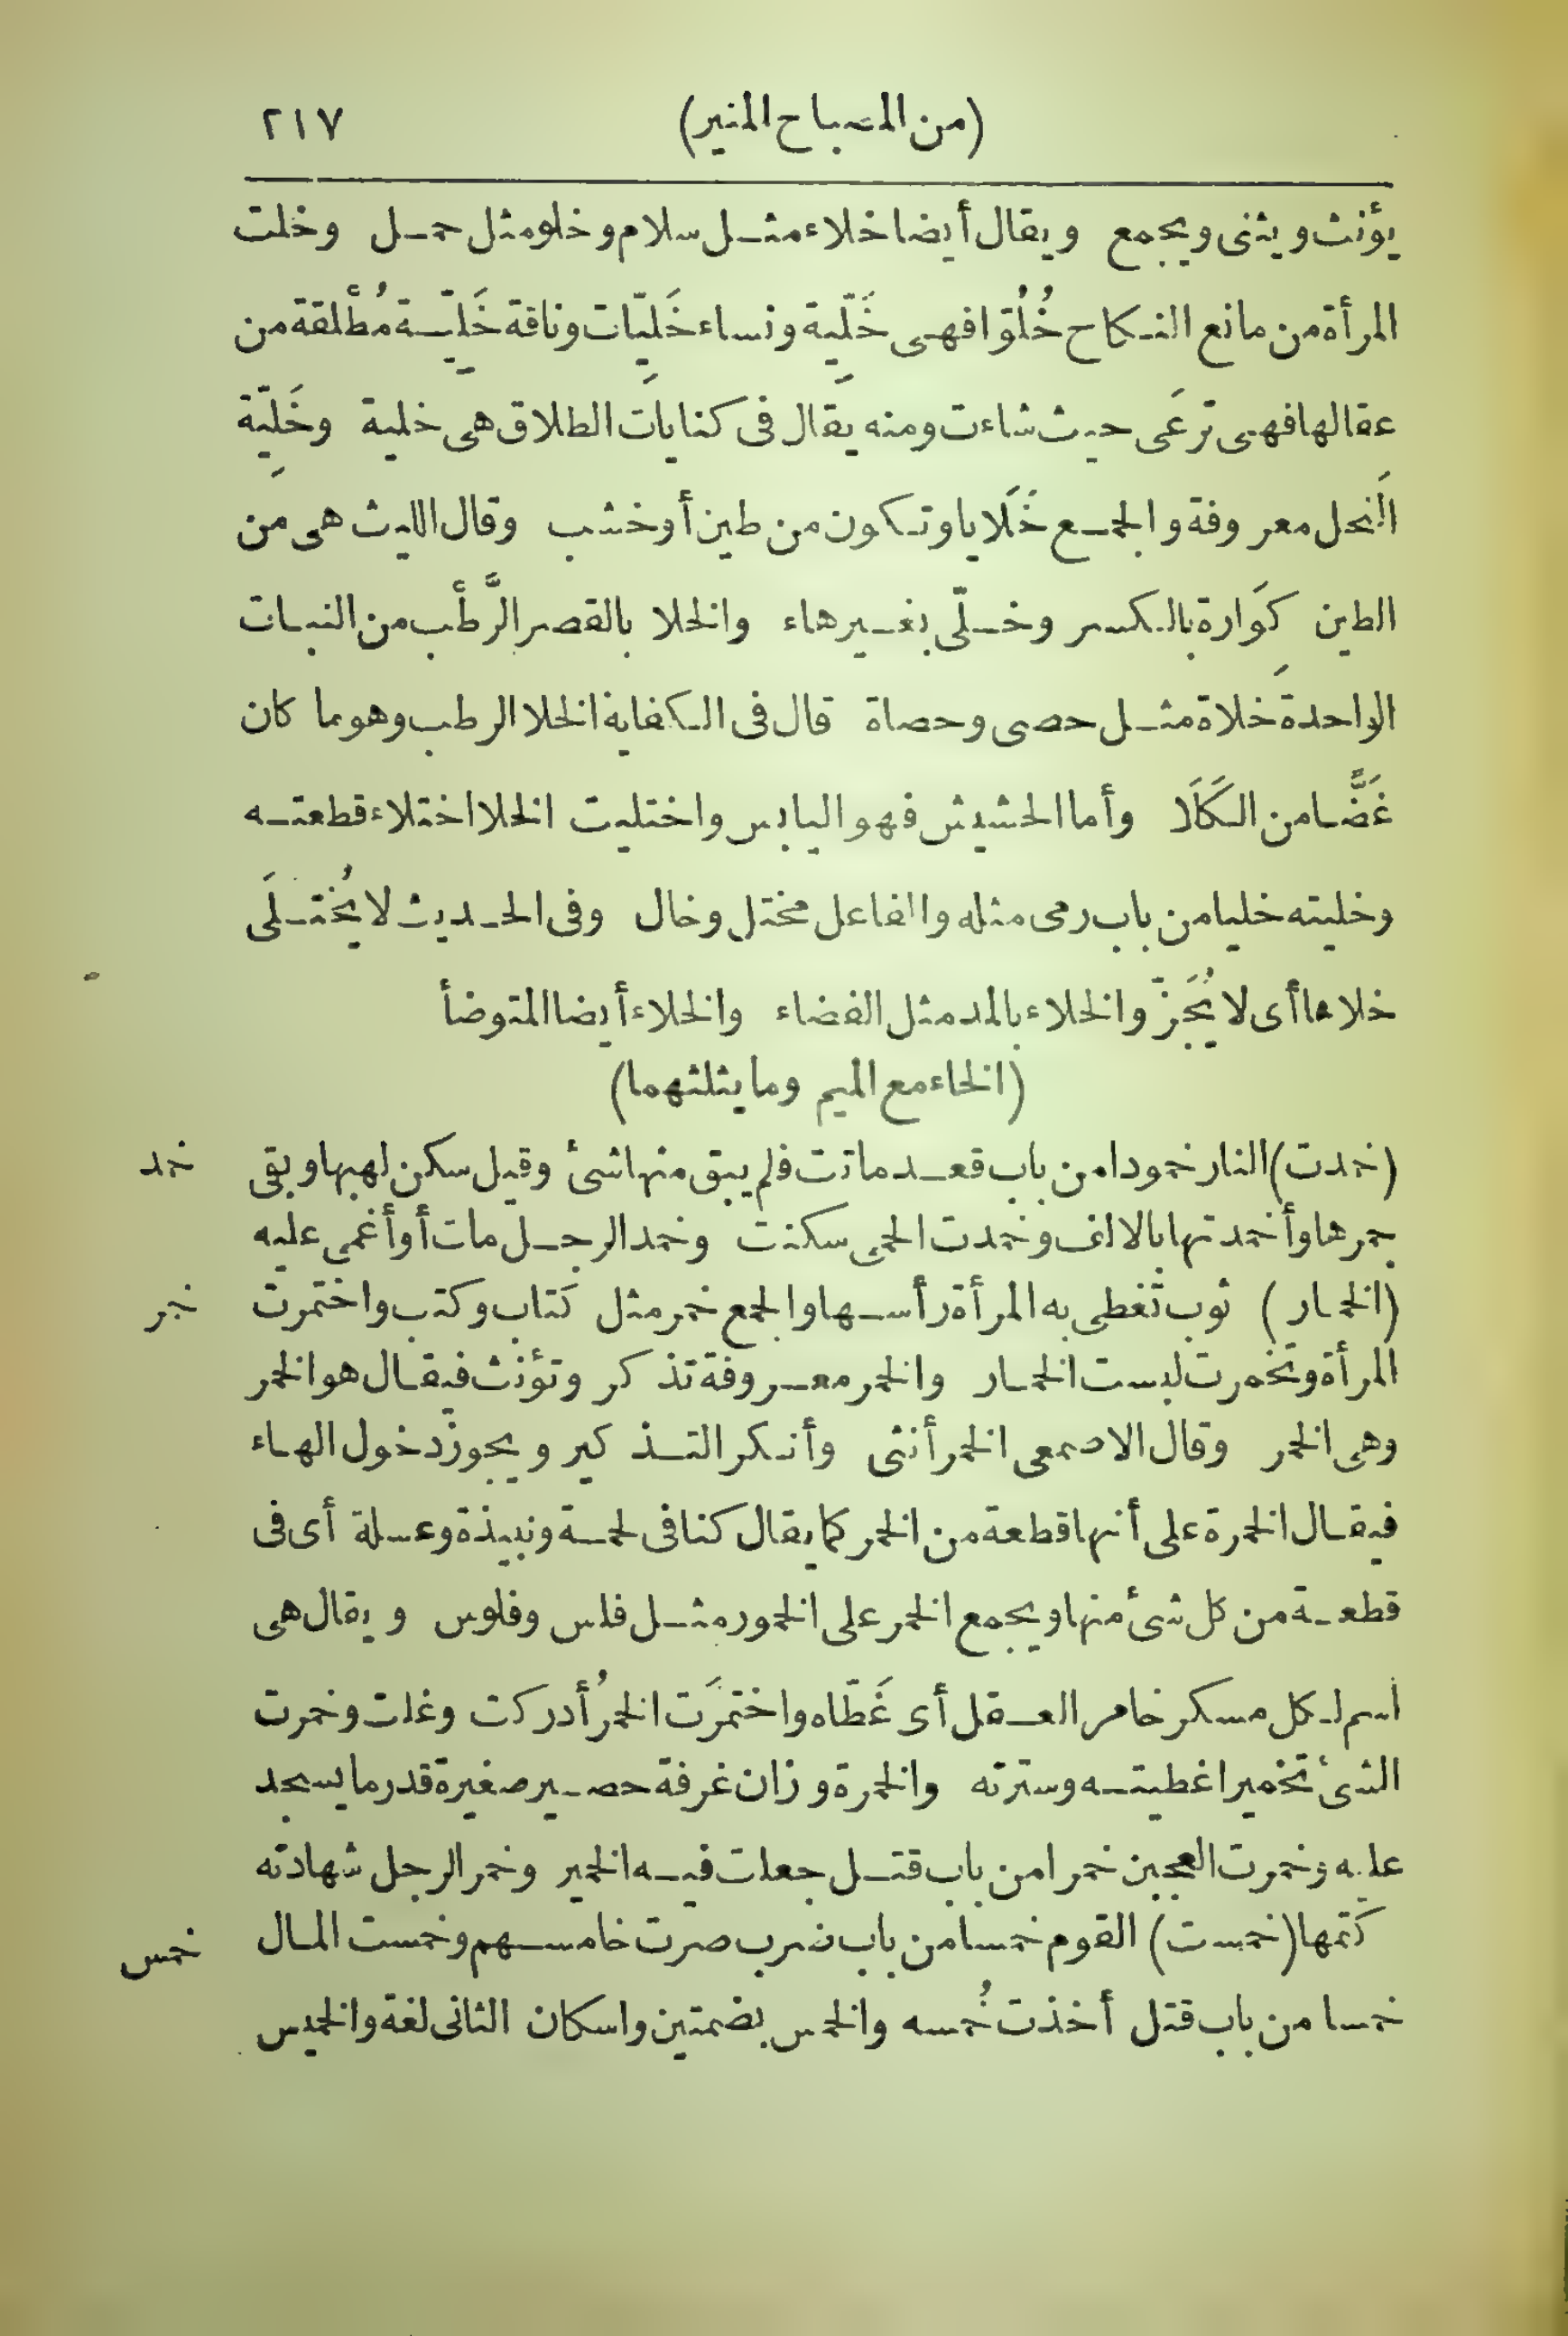 (من المصباح المنير) ٢١٧
يؤنث ويثنى ويجمع ويقال أيضا خلاء مثل سلام وخلو مثل حمل وخلت
المرأة من مانع النكاح خُلُوّا فهى خَلِّية ونساء خَلِيّات وناقة خَلِيّة مُطْلقة من
عقالها فهى ترعَى حيث شاءت ومنه يقال فى كنايات الطلاق هى خلية وخَلِيّة
النَحل معروفة والجمع خَلَايا وتكون من طين أو خشب وقال الليث هى من
الطين كِوَارة بالكسر وخلّى بغير هاء والخلا بالقصر الرَّطْب من النبات
الواحدة خلاة مثل حصى وحصاة قال فى الكفاية الخلا الرطب وهو ما كان
غَضًّا من الكَلَا وأما الحشيش فهو اليابس واختليت الخلا اختلاء قطعته
وخليته خليا من باب رمى مثله والفاعل مختل وخال وفى الحديث لا يُختلَى
خلاها أى لا يُجَزّ والخلاء بالمد مثل الفضاء والخلاء أيضا المتوضأ
(الخاء مع الميم وما يثلثهما)
(خمدت) النار خمودا من باب قعد ماتت فلم يبق منها شئ وقيل سكن لهبها وبقى
خمد
جمرها وأخمدتها بالالف وخمدت الحمى سكنت وخمد الرجل مات أو أغمى عليه
(الخمار) ثوب تغطى به المرأة رأسها والجمع خمر مثل كتاب وكتب واختمرت
خمر
المرأة وتخمرت لبست الخمار والخمر معروفة تذكر وتؤنث فيقال هو الخمر
وهى الخمر وقال الاصمعى الخمر أنثى وأنكر التذكير ويجوز دخول الهاء
فيقال الخمرة على أنها قطعة من الخمر كما يقال كنا فى لحمة ونبيذة وعسلة أى فى
قطعة من كل شئ منها ويجمع الخمر على الخمور مثل فلس وفلوس ويقال هى
اسم لكل مسكر خامر العقل أى غَطّاه واختمَرَت الخمرُ أدركت وغلت وخمرت
الشئ تخميرا غطيته وسترته والخمرة وزان غرفة حصير صغيرة قدر ما يسجد
عليه وخمرت العجين خمرا من باب قتل جعلت فيه الخمير وخمر الرجل شهادته
كتمها (خمست) القوم خمسا من باب ضرب صرت خامسهم وخمست المال
خمس
خمسا من باب قتل أخذت خُمسه والخمس بضمتين واسكان الثانى لغة والخميس